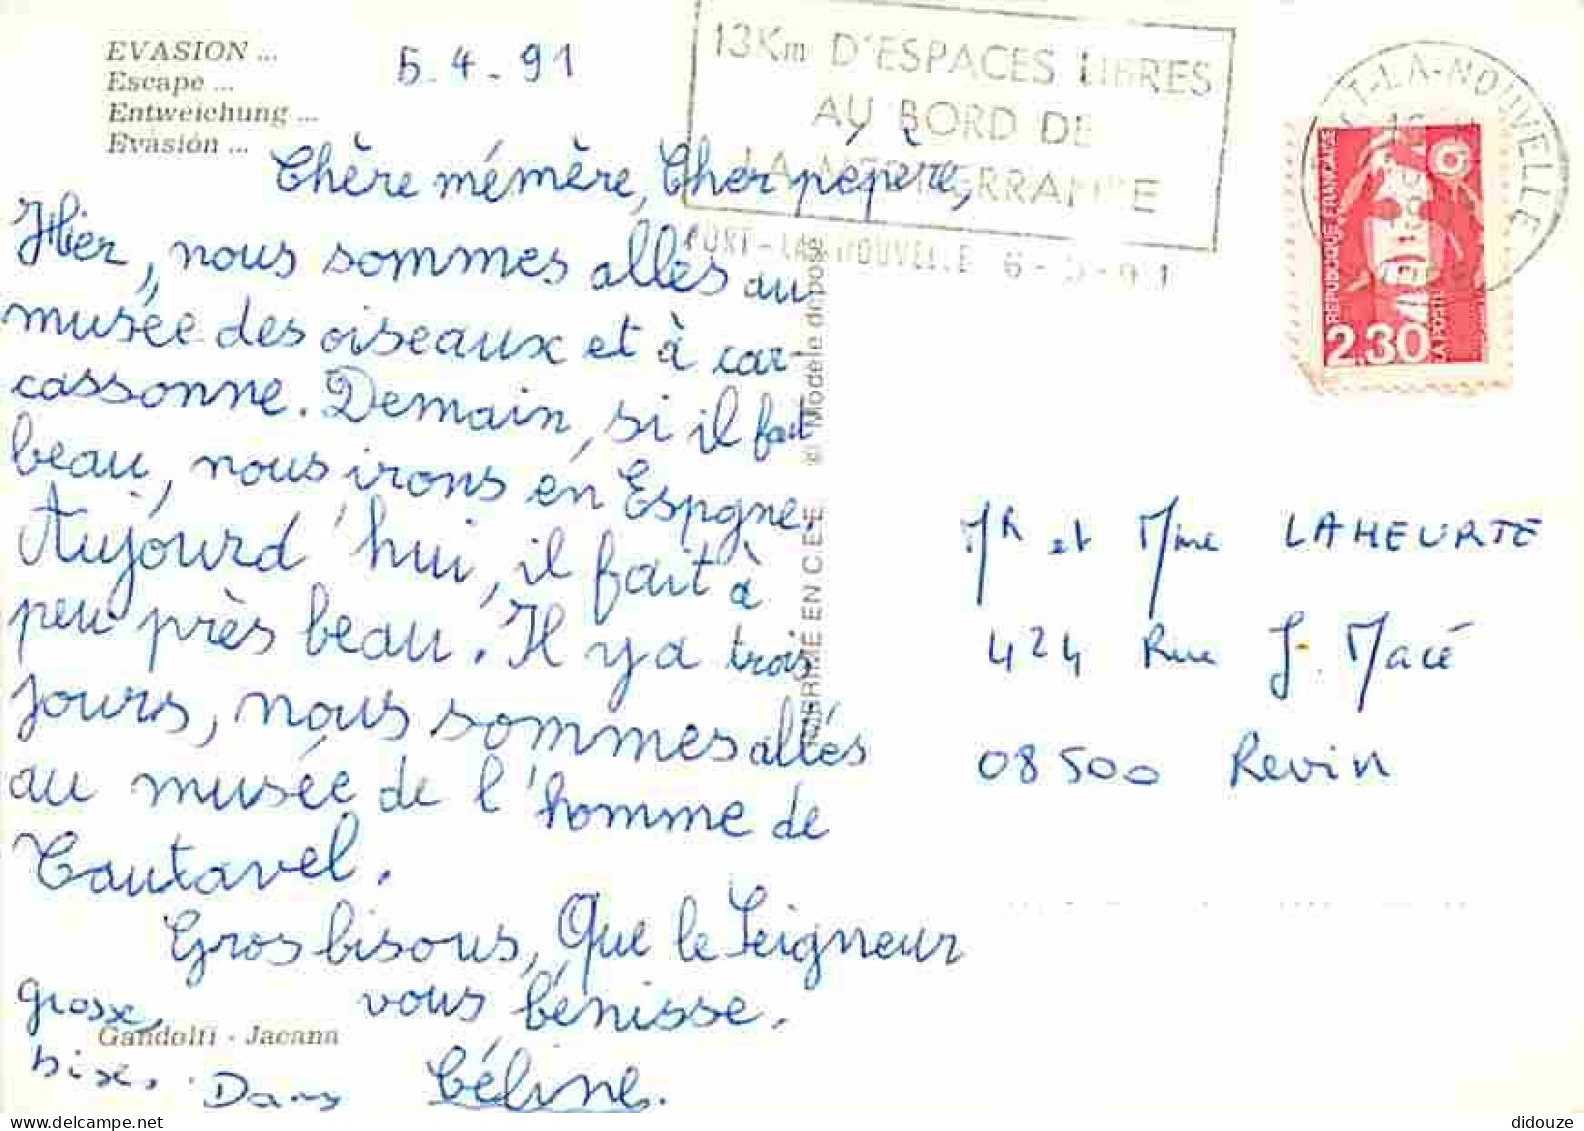 EVASION ...
Escape ...
Entweichung ...
Evasión ...
5.4.91
13Km D'ESPACES LIBRES
AU BORD DE
PORT-LA-NOUVELLE
T-LA-NOUVELLE
REPUBLIQUE FRANÇAISE
2,30
LA POSTE
Chère mémère, Cher pépère,
Hier, nous sommes allés au
musée des oiseaux et à car-
cassonne. Demain, si il fait
beau, nous irons en Espgne.
Aujourd'hui, il fait à
peu près beau. Il y a trois
jours, nous sommes allés
au musée de l'homme de
Tautavel.
Gros bisous, Que le Seigneur
vous bénisse.
Céline.
grosse
bise.
Gandolfi - Jacana
© Modèle déposé
IMPRIMÉ EN C.E.E.
Mr et Mme LAHEURTE
424 Rue J. Macé
08500 Revin
didouze